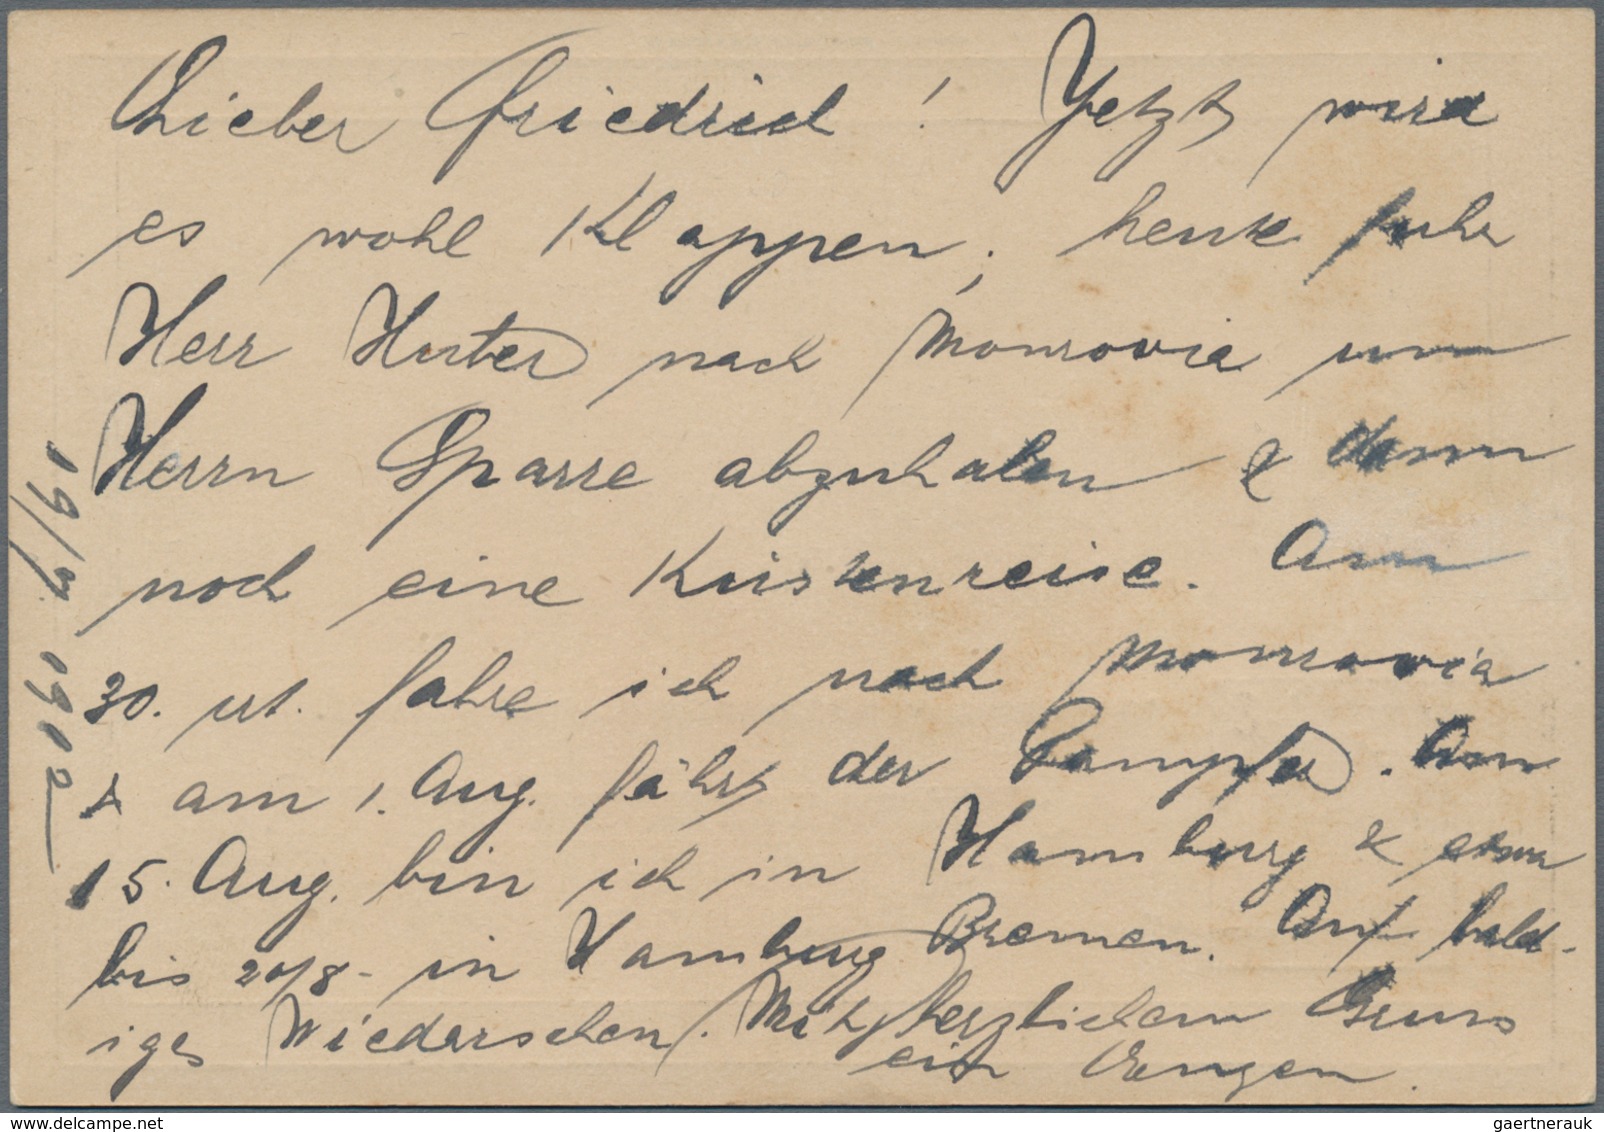 Lieber Friedrich! Jetzt wird
es wohl Klappen, heute fuhr
Herr Huber nach Monrovia um
Herrn Sparre abzuholen & dann
noch eine Küstenreise. Am
30. ut. fahre ich nach Monrovia
& am 1. Aug. fährt der Dampfer. Am
15. Aug. bin ich in Hamburg & etwa
bis 20/8 - in Hamburg Bremen. Auf bald-
iges Wiedersehen. Mit herzlichem Gruss
Eugen.
19/7. 1902
gaertnerauk@delcampe.net